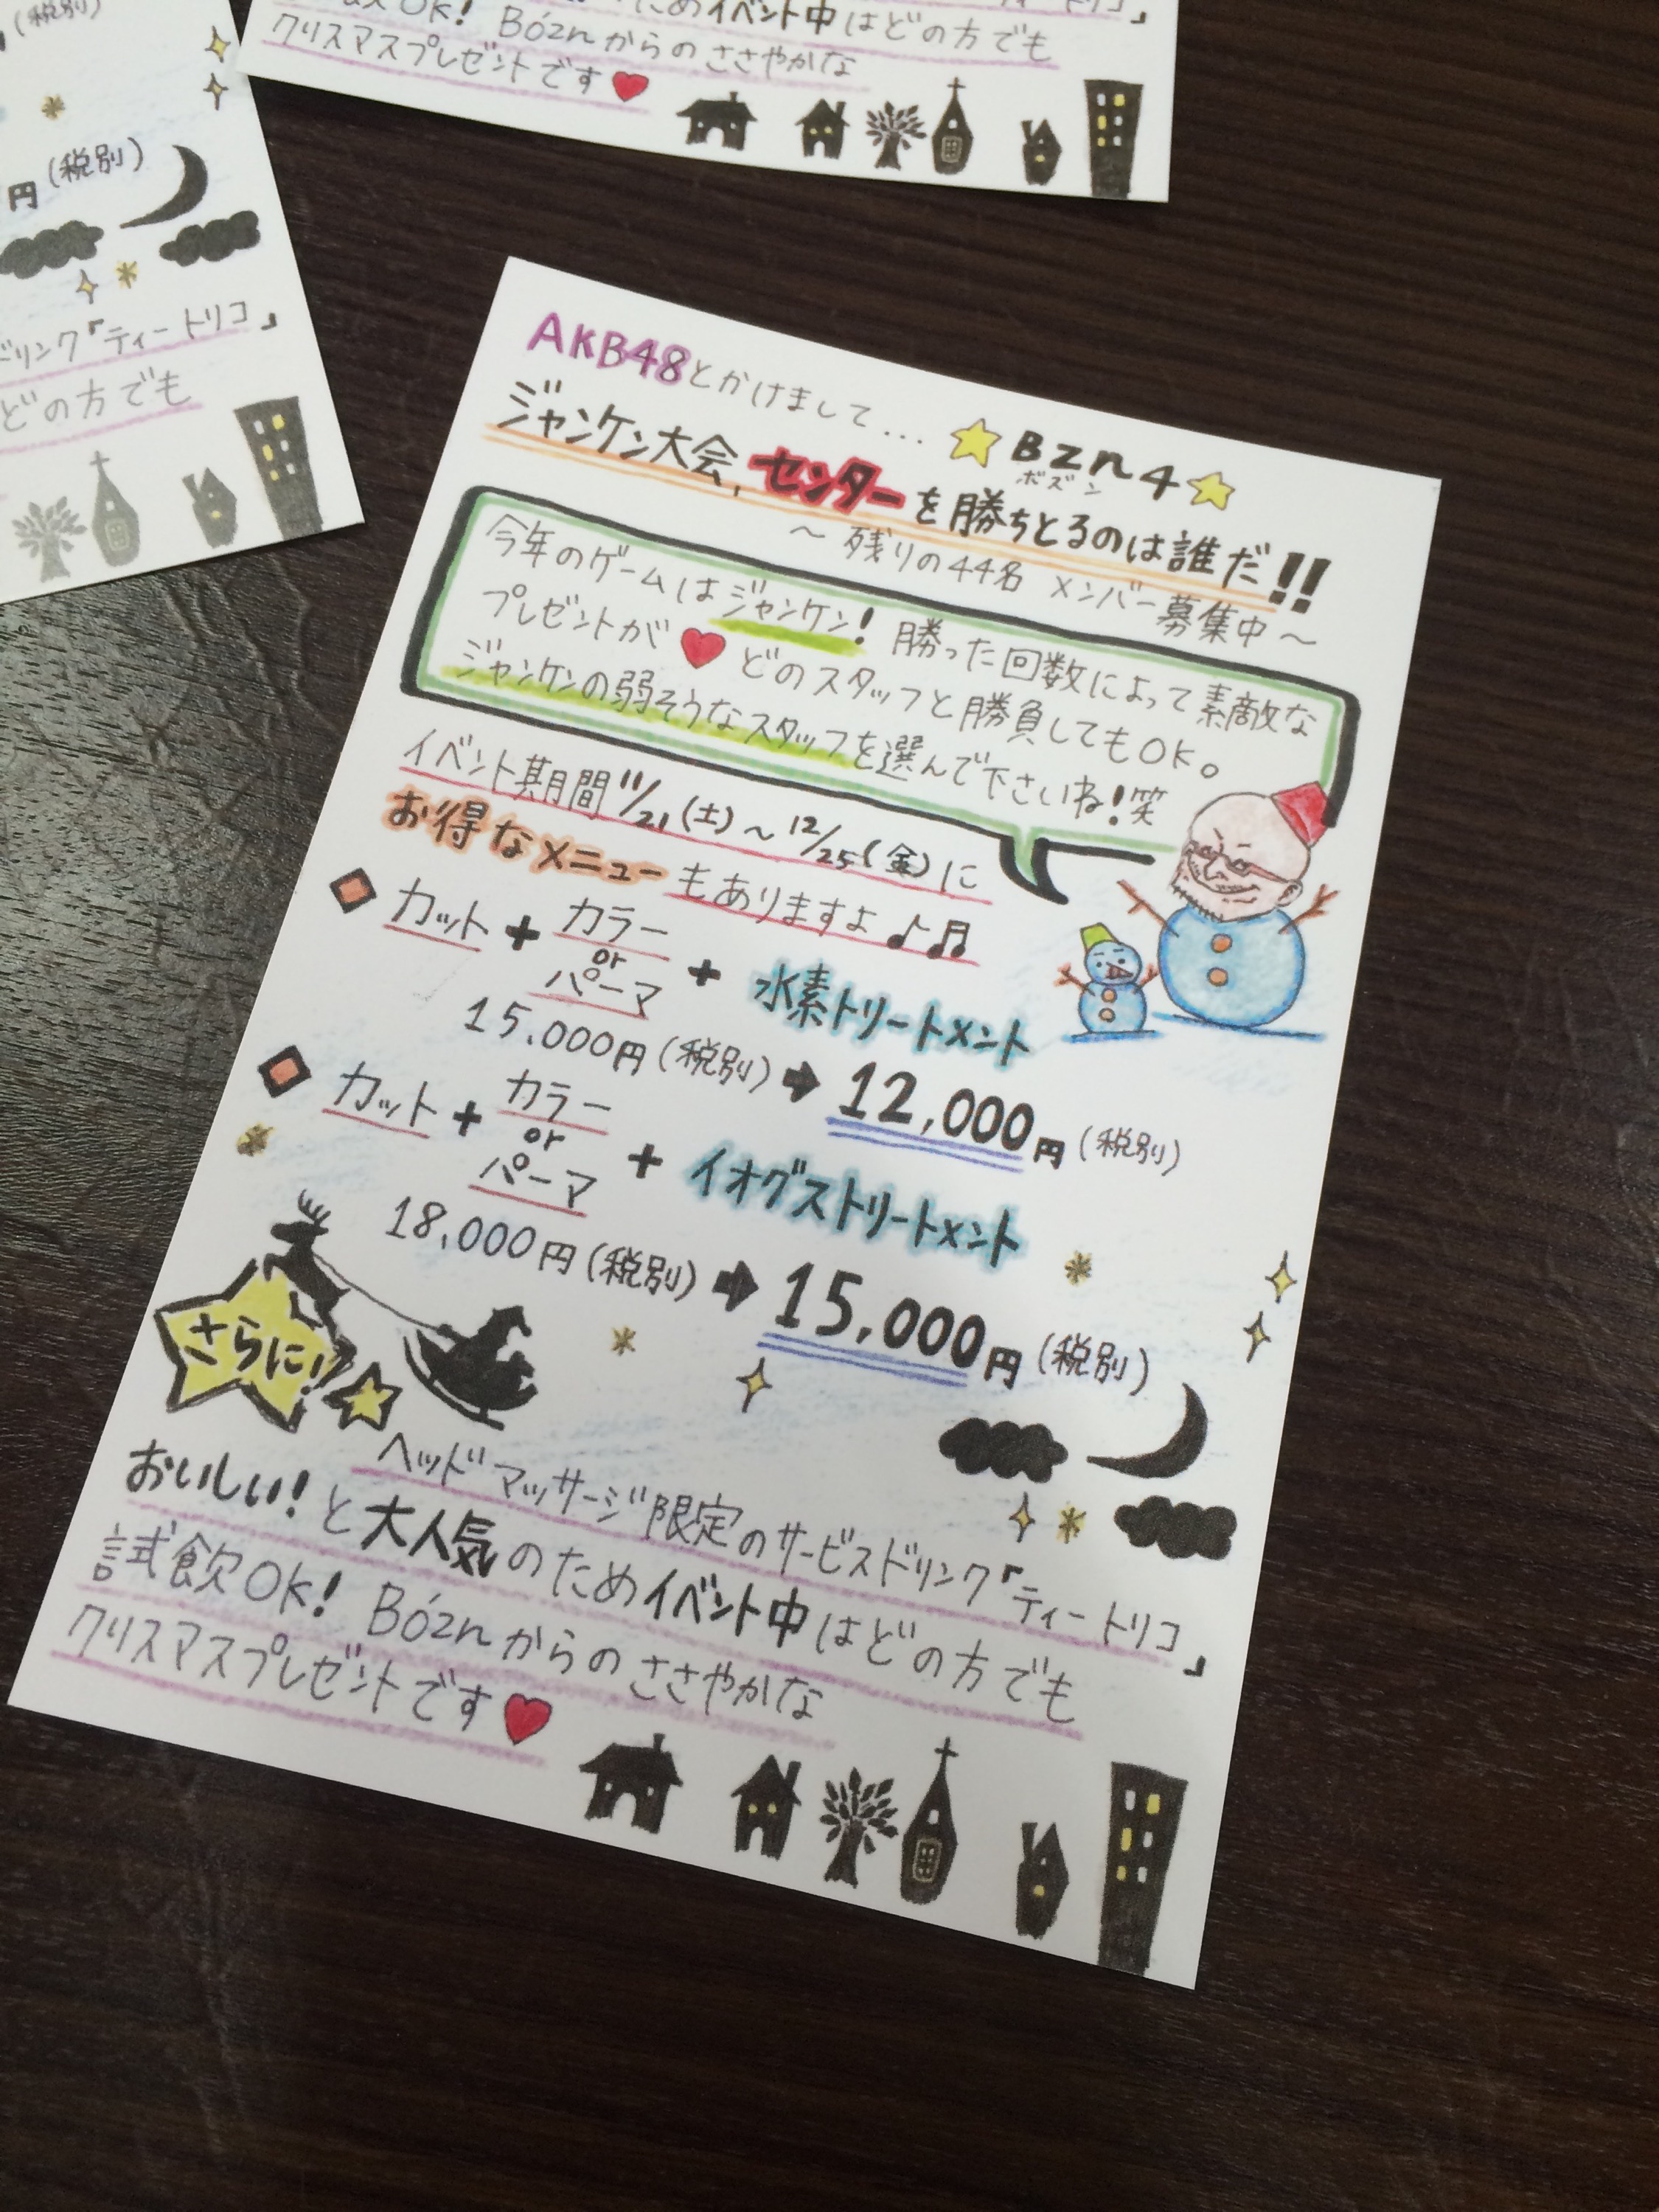 (税別)
円(税別)
ドリンク「ティートリコ」
どの方でも
OK! のためイベント中はどの方でも
クリスマスプレゼントです Bóznからのささやかな
AKB48とかけまして… Bzn4
ボズン
ジャンケン大会,センターを勝ちとるのは誰だ!!
～残りの44名 メンバー募集中～
今年のゲームはジャンケン!勝った回数によって素敵な
プレゼントが どのスタッフと勝負してもOK。
ジャンケンの弱そうなスタッフを選んで下さいね!笑
イベント期間11/21(土)～12/25(金)に
お得なメニューもありますよ♪♬
カット+カラーorパーマ+水素トリートメント
15,000円(税別)➡12,000円(税別)
カット+カラーorパーマ+イオグストリートメント
18,000円(税別)➡15,000円(税別)
さらに!
ヘッドマッサージ限定のサービスドリンク「ティートリコ」
おいしい!と大人気のためイベント中はどの方でも
試飲OK! Bóznからのささやかな
クリスマスプレゼントです